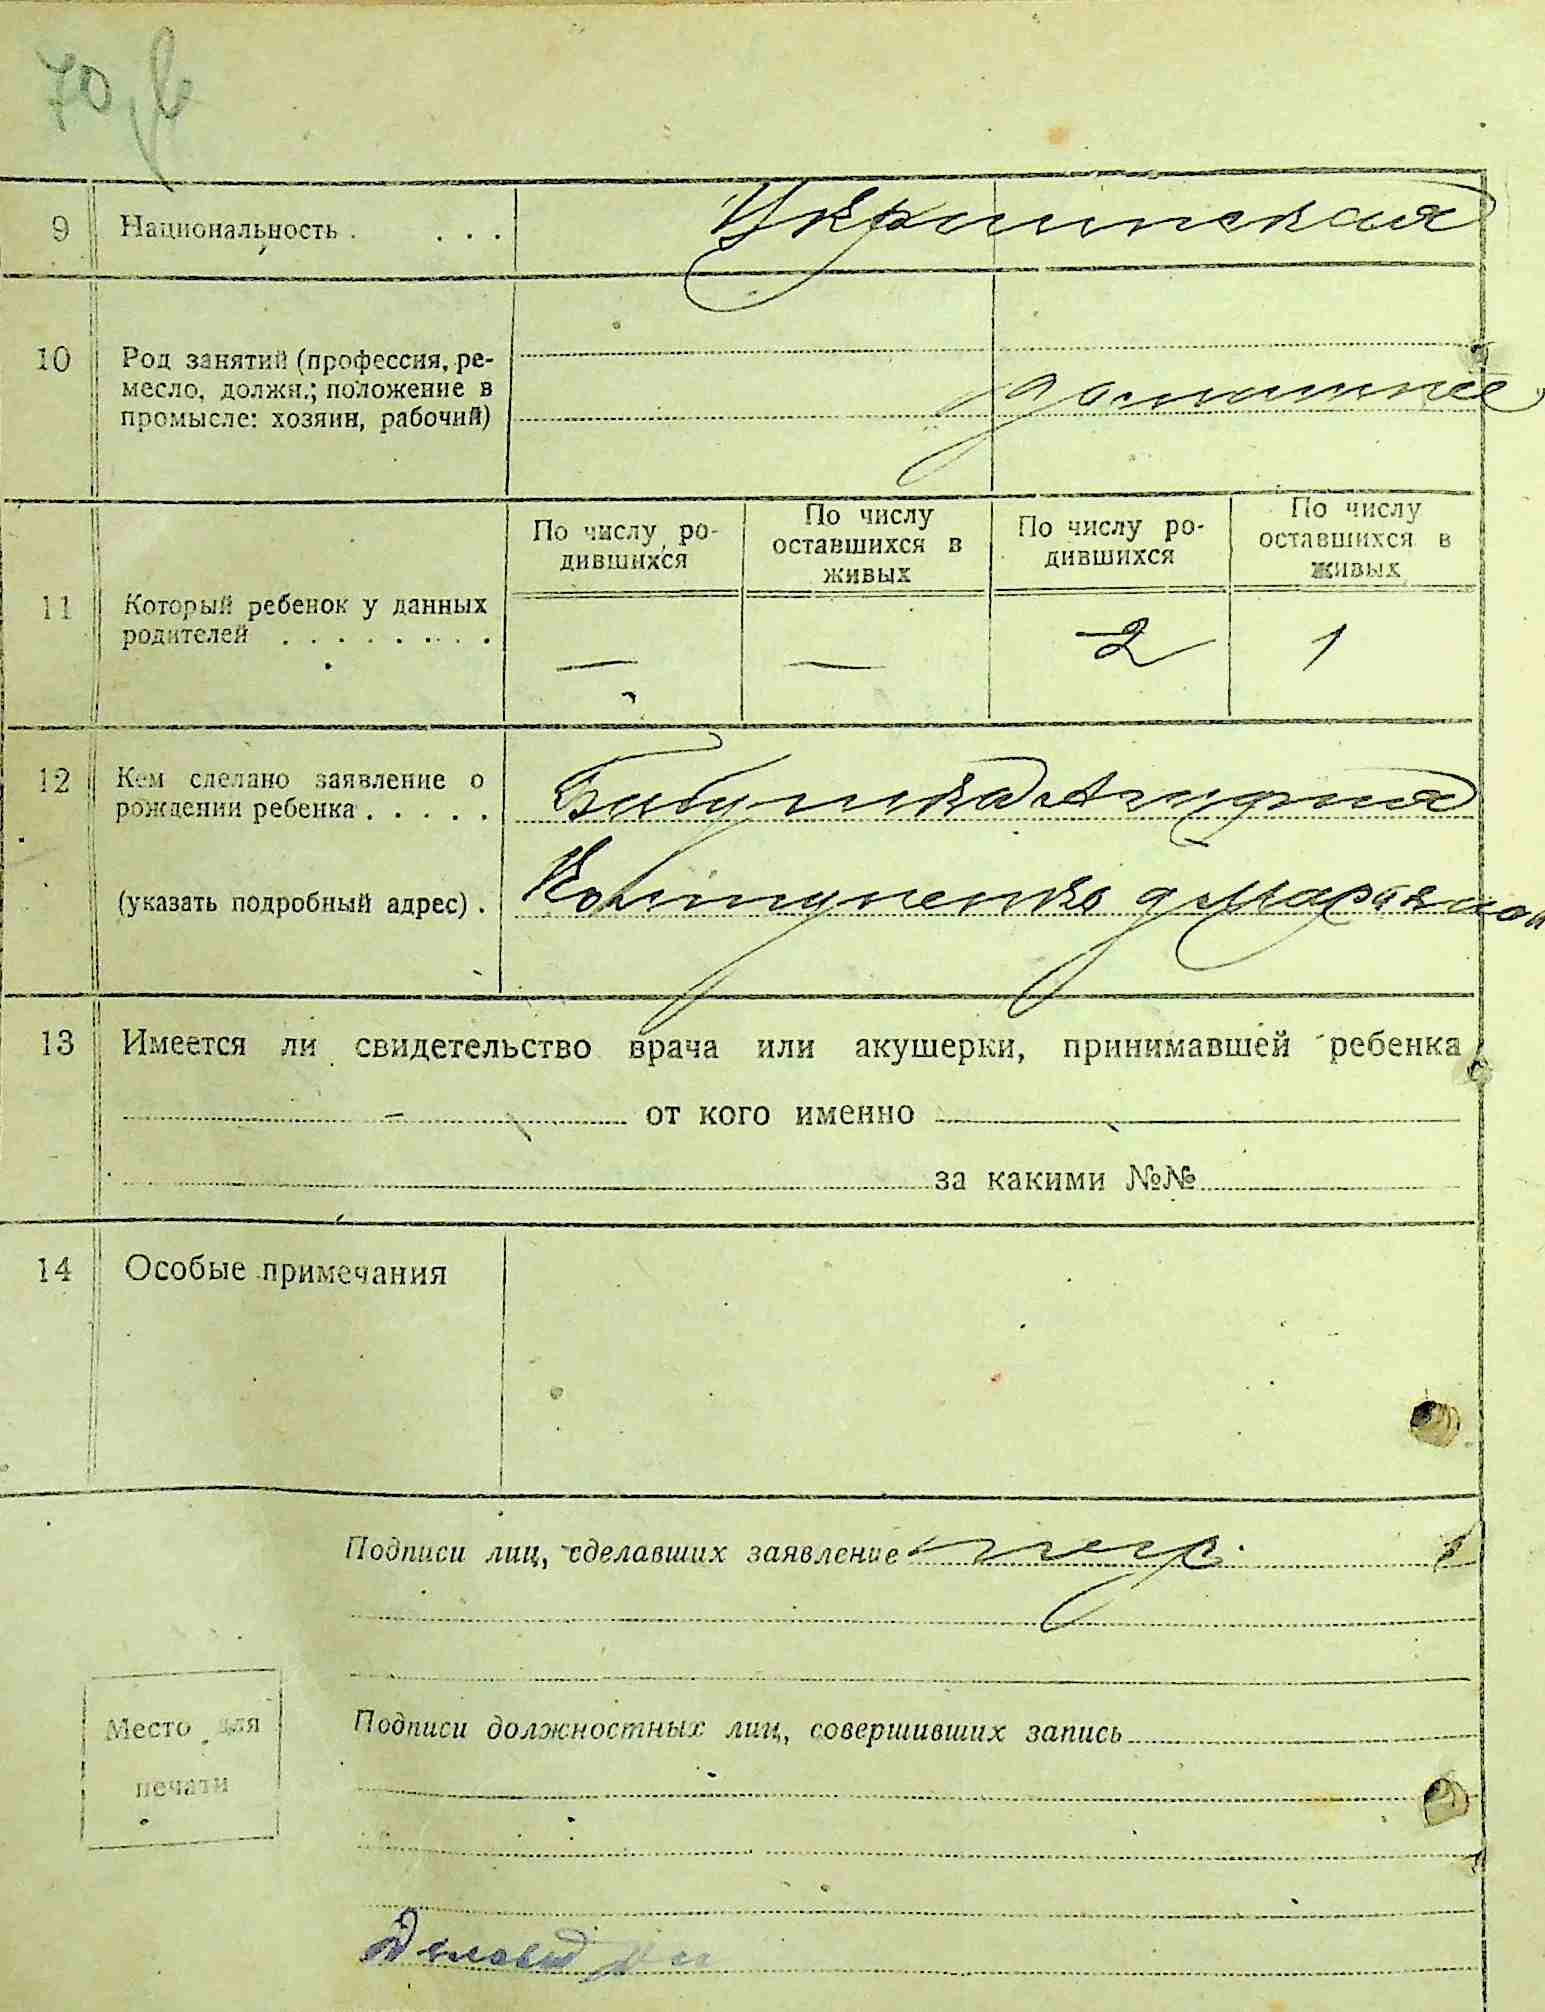 70
9 Национальность . . . . Украинская
10 Род занятий (профессия, ре-
месло, должн.; положение в
промысле: хозяин, рабочий)
домашнее
По числу ро-
дившихся
По числу
оставшихся в
живых
По числу ро-
дившихся
По числу
оставшихся в
живых
11 Который ребенок у данных
родителей . . . . . . . .
— — 2 1
12 Кем сделано заявление о
рождении ребенка . . . . .
Бабушка
(указать подробный адрес) .
13 Имеется ли свидетельство врача или акушерки, принимавшей ребенка
— от кого именно
за какими №№
14 Особые примечания
Подписи лиц, сделавших заявление негр.
Место для
печати
Подписи должностных лиц, совершивших запись